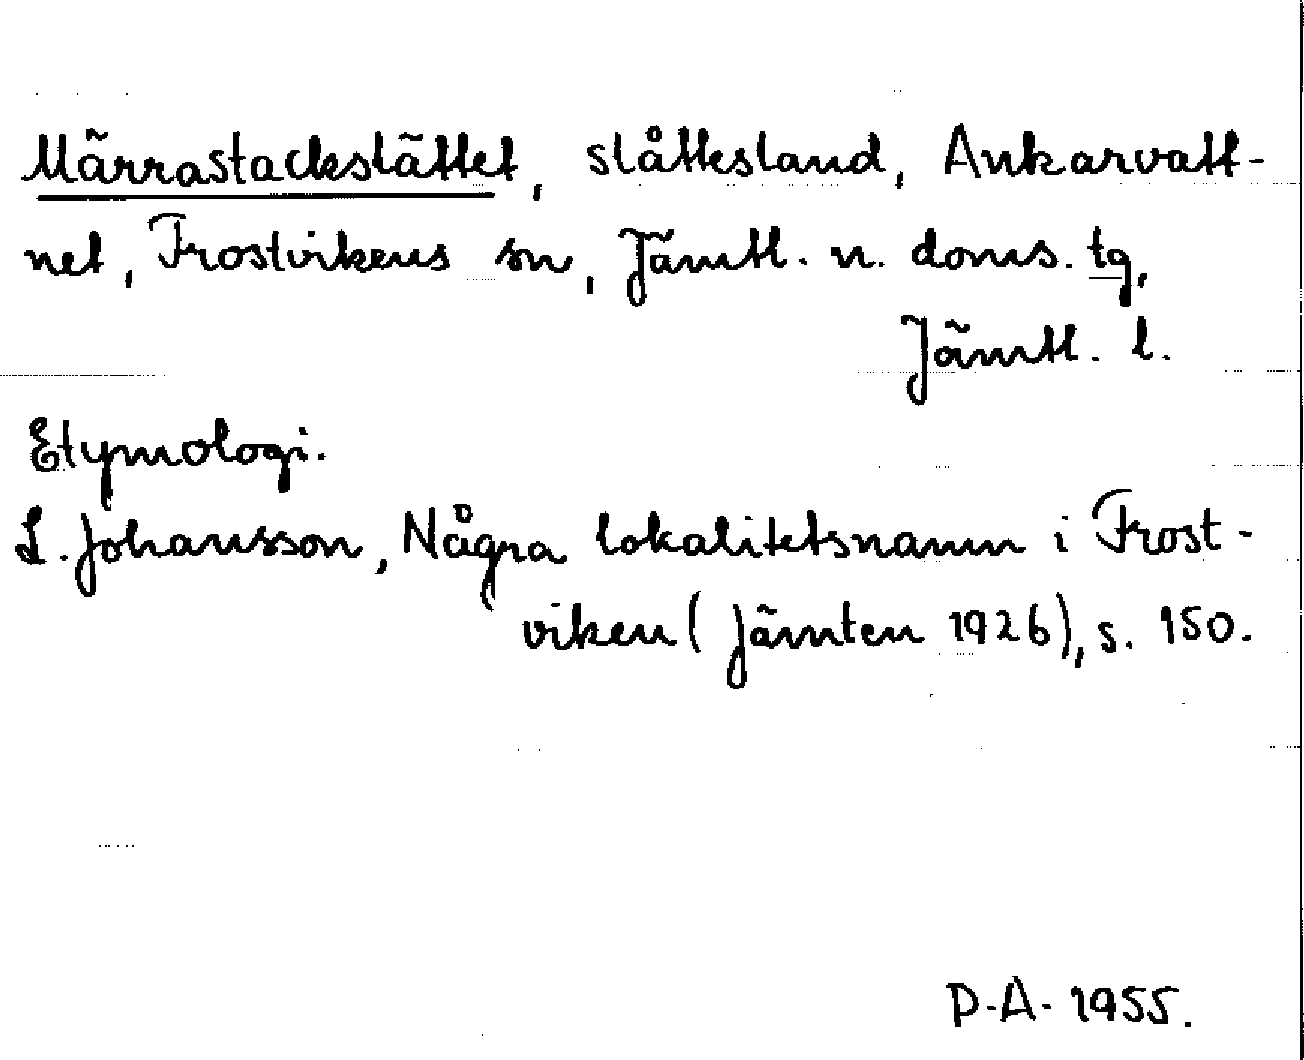 Märrastackslättet, slåttesland, Ankarvatt-
net, Frostvikens sn, Jämtl. n. doms. tg,
Jämtl. l.
Etymologi.
L. Johansson, Några lokalitetsnamn i Frost-
viken (Jämten 1926), s. 150.
P-A- 1955.